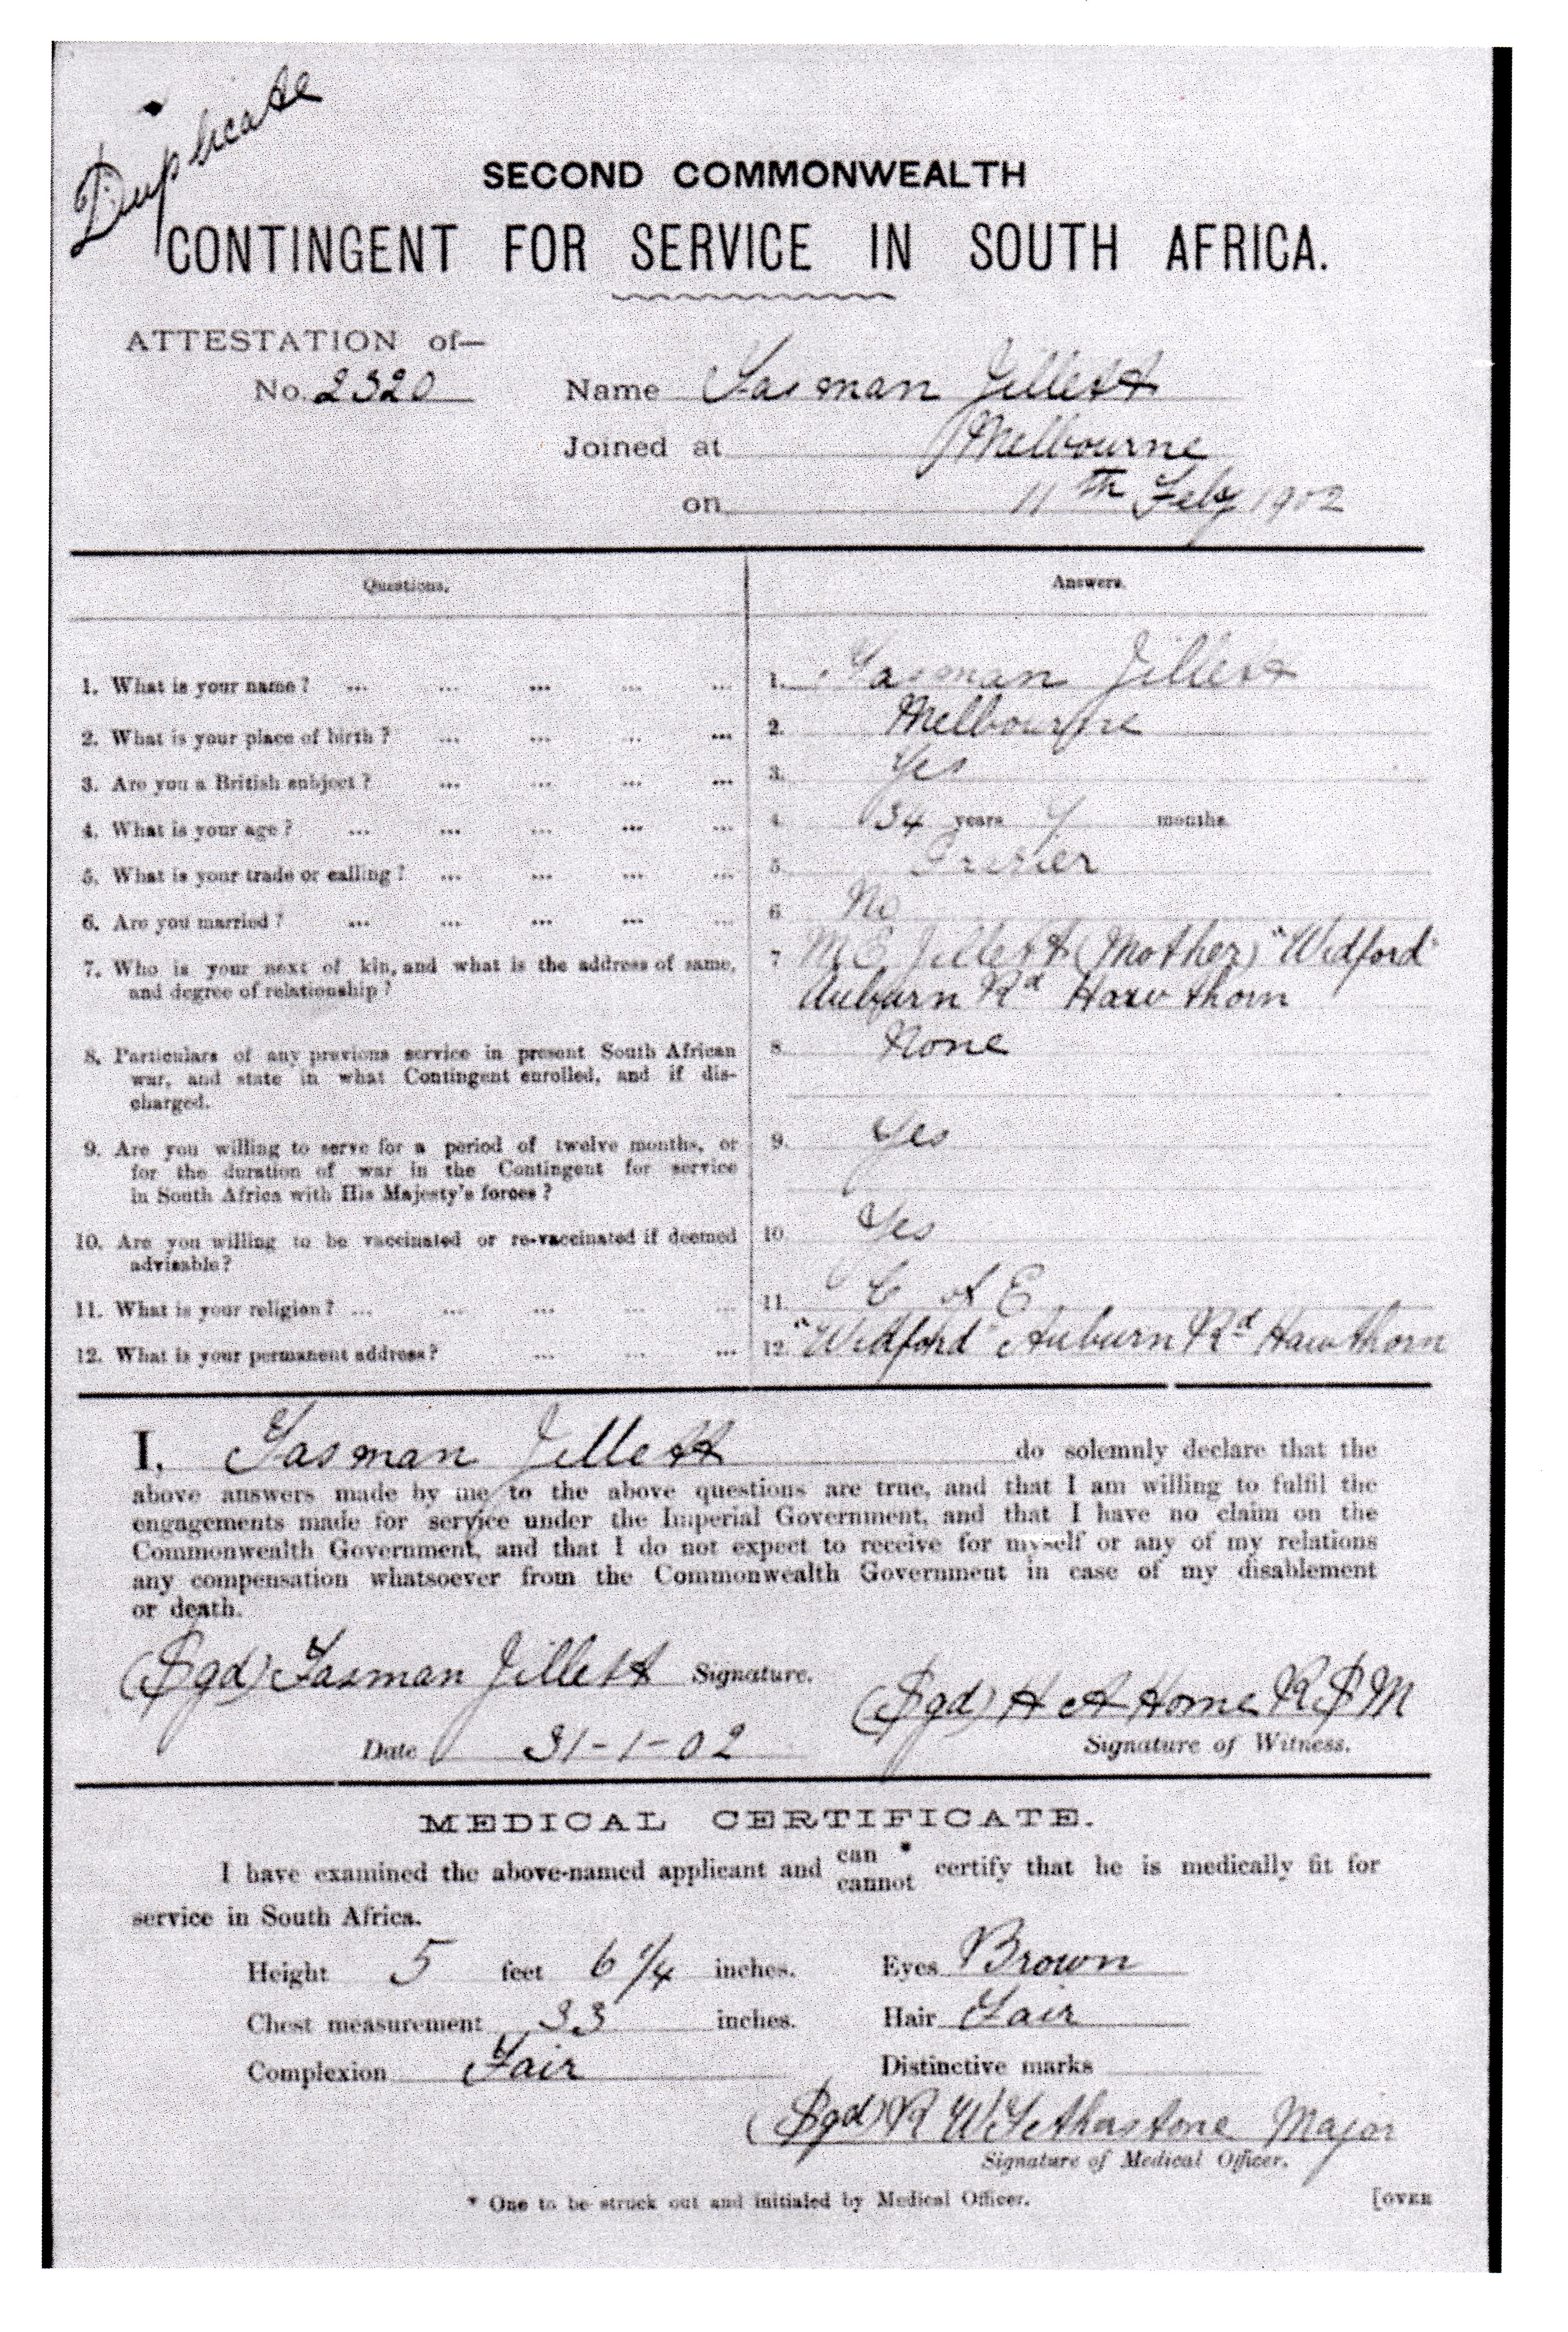 Duplicate
SECOND COMMONWEALTH
CONTINGENT FOR SERVICE IN SOUTH AFRICA.
ATTESTATION of—
No. 2320 Name Tasman Jillett
Joined at Melbourne
on 11th Feby 1902
Questions. Answers.
1. What is your name? ... ... ... ... ... 1. Tasman Jillett
2. What is your place of birth? ... ... ... ... 2. Melbourne
3. Are you a British subject? ... ... ... ... 3. Yes
4. What is your age? ... ... ... ... ... 4. 34 years 7 months
5. What is your trade or calling? ... ... ... ... 5.
6. Are you married? ... ... ... ... ... 6. No
7. Who is your next of kin, and what is the address of same, 7 M E Jillett (Mother) "Widford"
and degree of relationship? Auburn Rd Hawthorn
8. Particulars of any previous service in present South African 8. None
war, and state in what Contingent enrolled, and if dis-
charged.
9. Are you willing to serve for a period of twelve months, or 9. Yes
for the duration of war in the Contingent for service
in South Africa with His Majesty's forces?
10. Are you willing to be vaccinated or re-vaccinated if deemed 10. Yes
advisable?
11. What is your religion? ... ... ... ... 11. C of E
12. What is your permanent address? ... ... ... 12. "Widford" Auburn Rd Hawthorn
I, Tasman Jillett do solemnly declare that the
above answers made by me to the above questions are true, and that I am willing to fulfil the
engagements made for service under the Imperial Government, and that I have no claim on the
Commonwealth Government, and that I do not expect to receive for myself or any of my relations
any compensation whatsoever from the Commonwealth Government in case of my disablement
or death.
(Sgd) Tasman Jillett Signature. (Sgd) H A Horne RSM
Date 31-1-02 Signature of Witness.
MEDICAL CERTIFICATE.
I have examined the above-named applicant and can * cannot certify that he is medically fit for
service in South Africa.
Height 5 feet 6 1/4 inches. Eyes Brown
Chest measurement 33 inches. Hair Fair
Complexion Fair Distinctive marks
(Sgd) R W Fetherstone Major
Signature of Medical Officer.
* One to be struck out and initialed by Medical Officer. [OVER